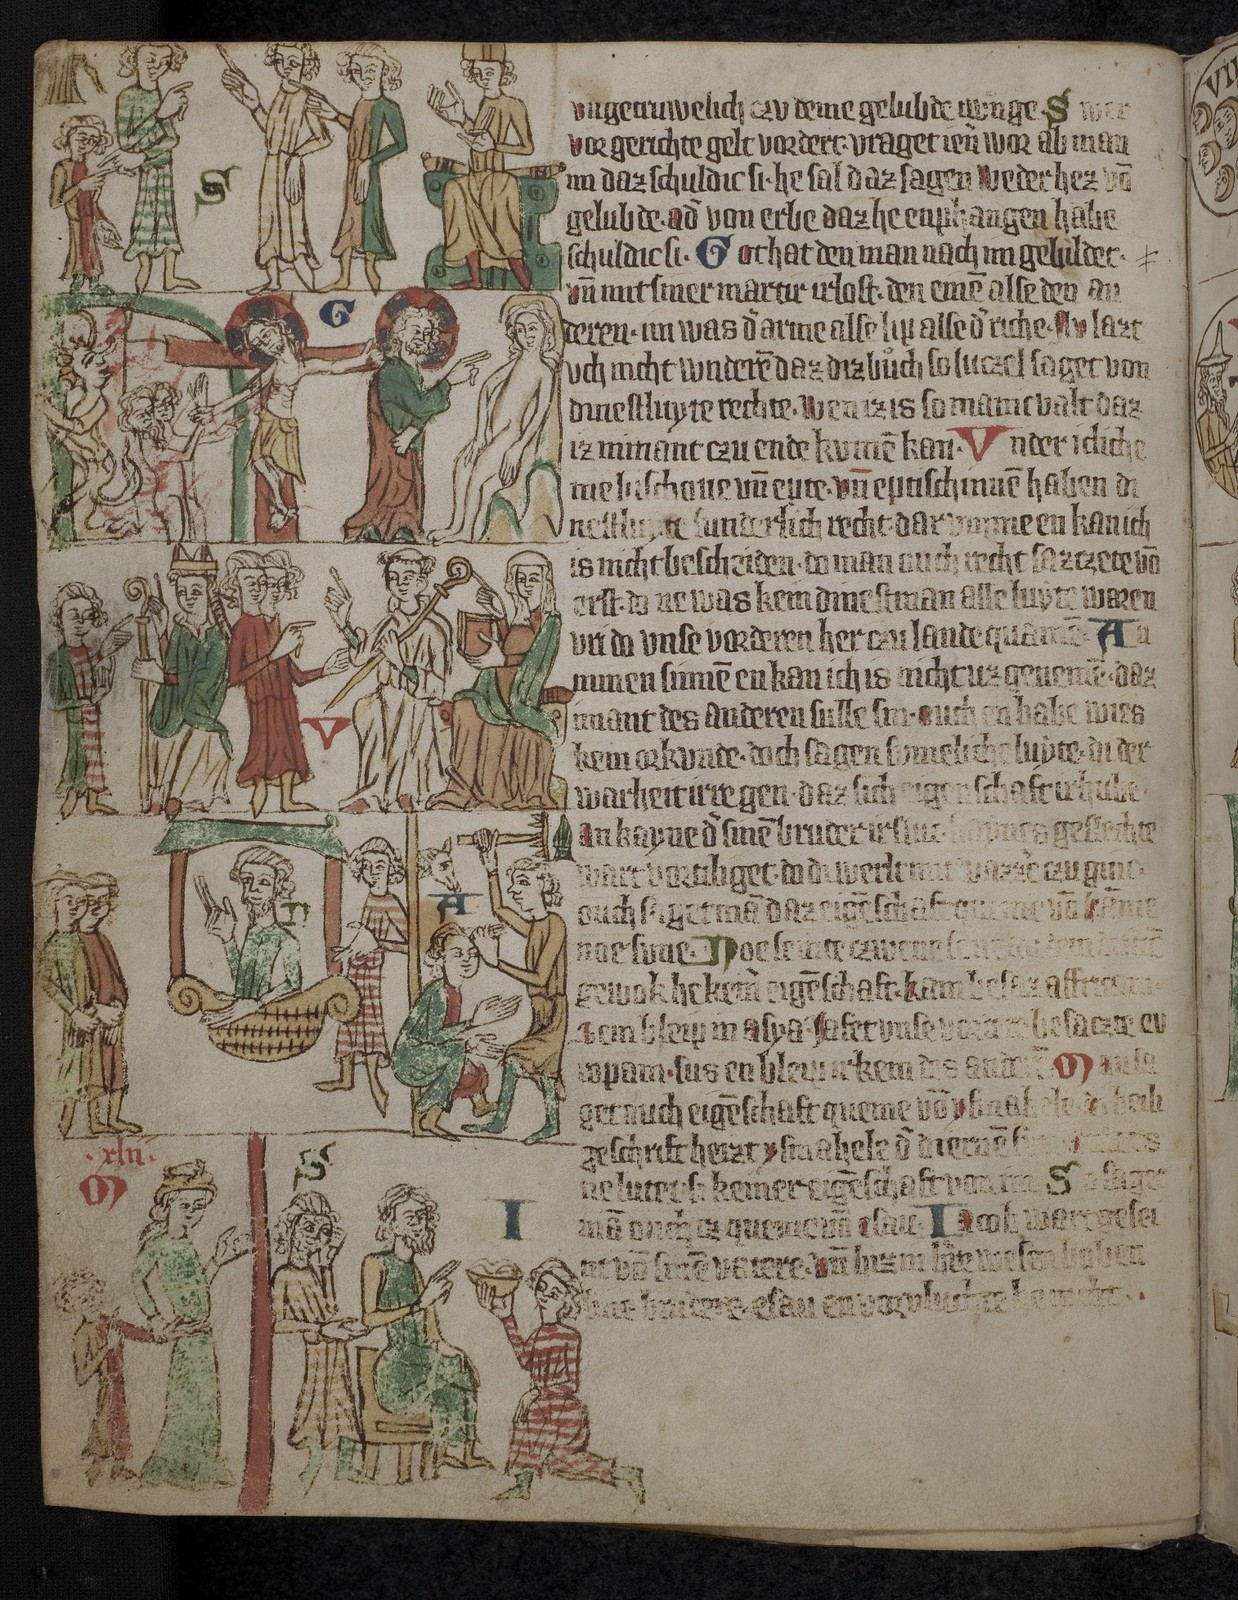 vngetruwelich czv deme gelubde twinge. S wer
vor gerichte gelt vordert. vraget ien̄ wor ab man
im daz schuldic si. he sal daz sagen weder hez vō
gelubde. ad' von erbe daz he enphangen habe
schuldic si. G ot hat den man nach im gebildet.
vn̄ mit siner martir irlost. den einē alse den an
deren. im was d' arme alse lip alse d' riche. Nv lazt
vch nicht wnderē daz diz bůch so luczel saget von
dinestluyte rechte. wen iz is so manicvalt daz
iz nimant czu ende kvmē kan. V nder icliche
me bischoue vn̄ epte. vn̄ eptischinnē haben di
nestluyte sunderlich recht. dar vmme en kan ich
is nicht bescheiden. do man auch recht saztzete vō
erst. do ne was kein dinestman alle luyte waren
vri do vnse vorderen her czu lande quamē. A n
minen sinnē en kan ich is nicht uz genemē. daz
imant des anderen sulle sin. ouch en habe wirs
kein orkvnde. doch sagen sumeliche luyte. di der
warheit irre gen. daz sich eigenschaft irhube.
an kayne d' sinē bruder irsluc. kaynes geslechte
wart vortiliget. do di werlt mit wazz'e czu ginc.
ouch saget mā daz eigēschaft queme vō kāme
noe sone. N oe seinte czwene sone
gewok he kein' eigēschaft. kam besaz affricam.
Sem bleip in asya. Jafet vnse vordere besaczte eu
ropam. sus en bleip ir kein des anderē. M an sa
get auch eigēschaft queme vō ysmahele. di heili
geschrift heizt ysmahele d' diernē sun. anders
ne lutet si keiner eigēschaft von im. S o saget
mā ouch iz queme vō esau. I acob wart gesei
nt vō sinē vatere. vn̄ hiz in h're wesen boben
sine brudere. esau en vorvluchte he nicht.
S
G
V
N
A
.xlii.
M
S
I